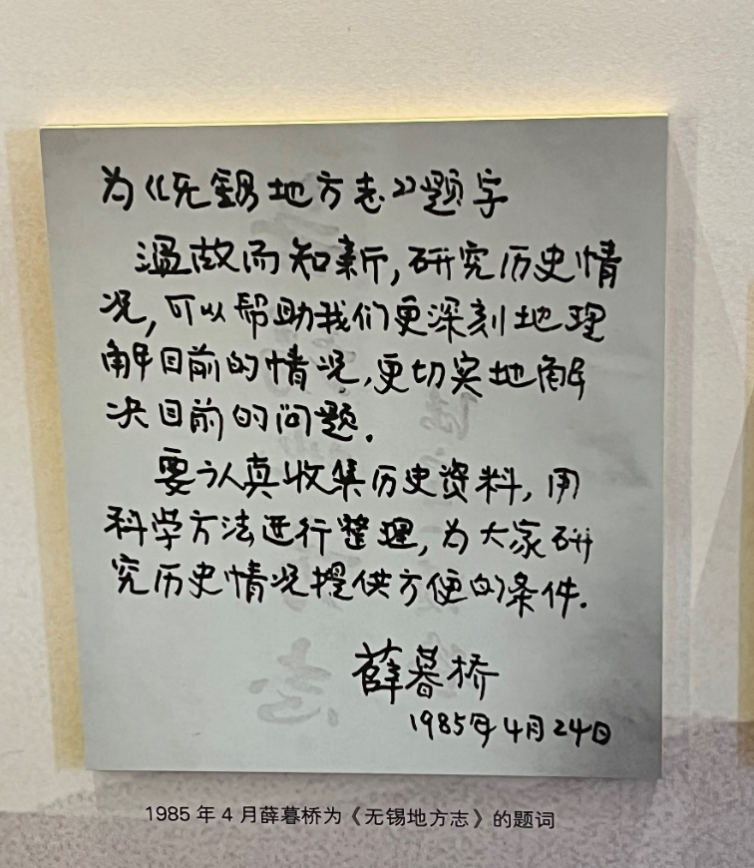 为《无锡地方志》题字
温故而知新,研究历史情
况,可以帮助我们更深刻地理
解目前的情况,更切实地解
决目前的问题.
要认真收集历史资料,用
科学方法进行整理,为大家研
究历史情况提供方便的条件.
薛暮桥
1985年4月24日
1985年4月薛暮桥为《无锡地方志》的题词